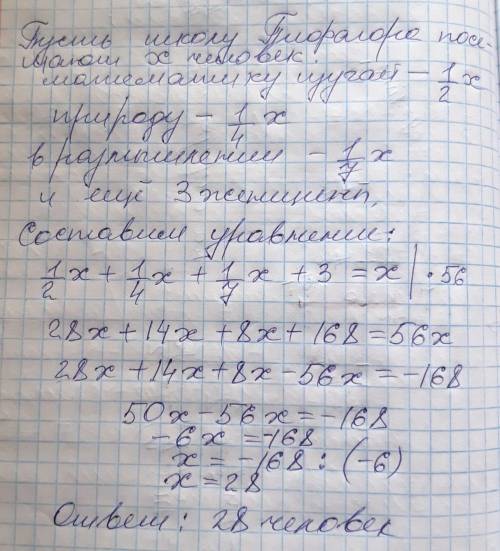 Пусть школу Пифагора посе-
щают x человек.
математику изучают – 1/2 x
природу – 1/4 x
в размышлении – 1/7 x
и ещё 3 женщины,
Составим уравнение:
1/2 x + 1/4 x + 1/7 x + 3 = x | · 56
28x + 14x + 8x + 168 = 56x
28x + 14x + 8x - 56x = -168
50x - 56x = -168
-6x = -168
x = -168 : (-6)
x = 28
Ответ: 28 человек